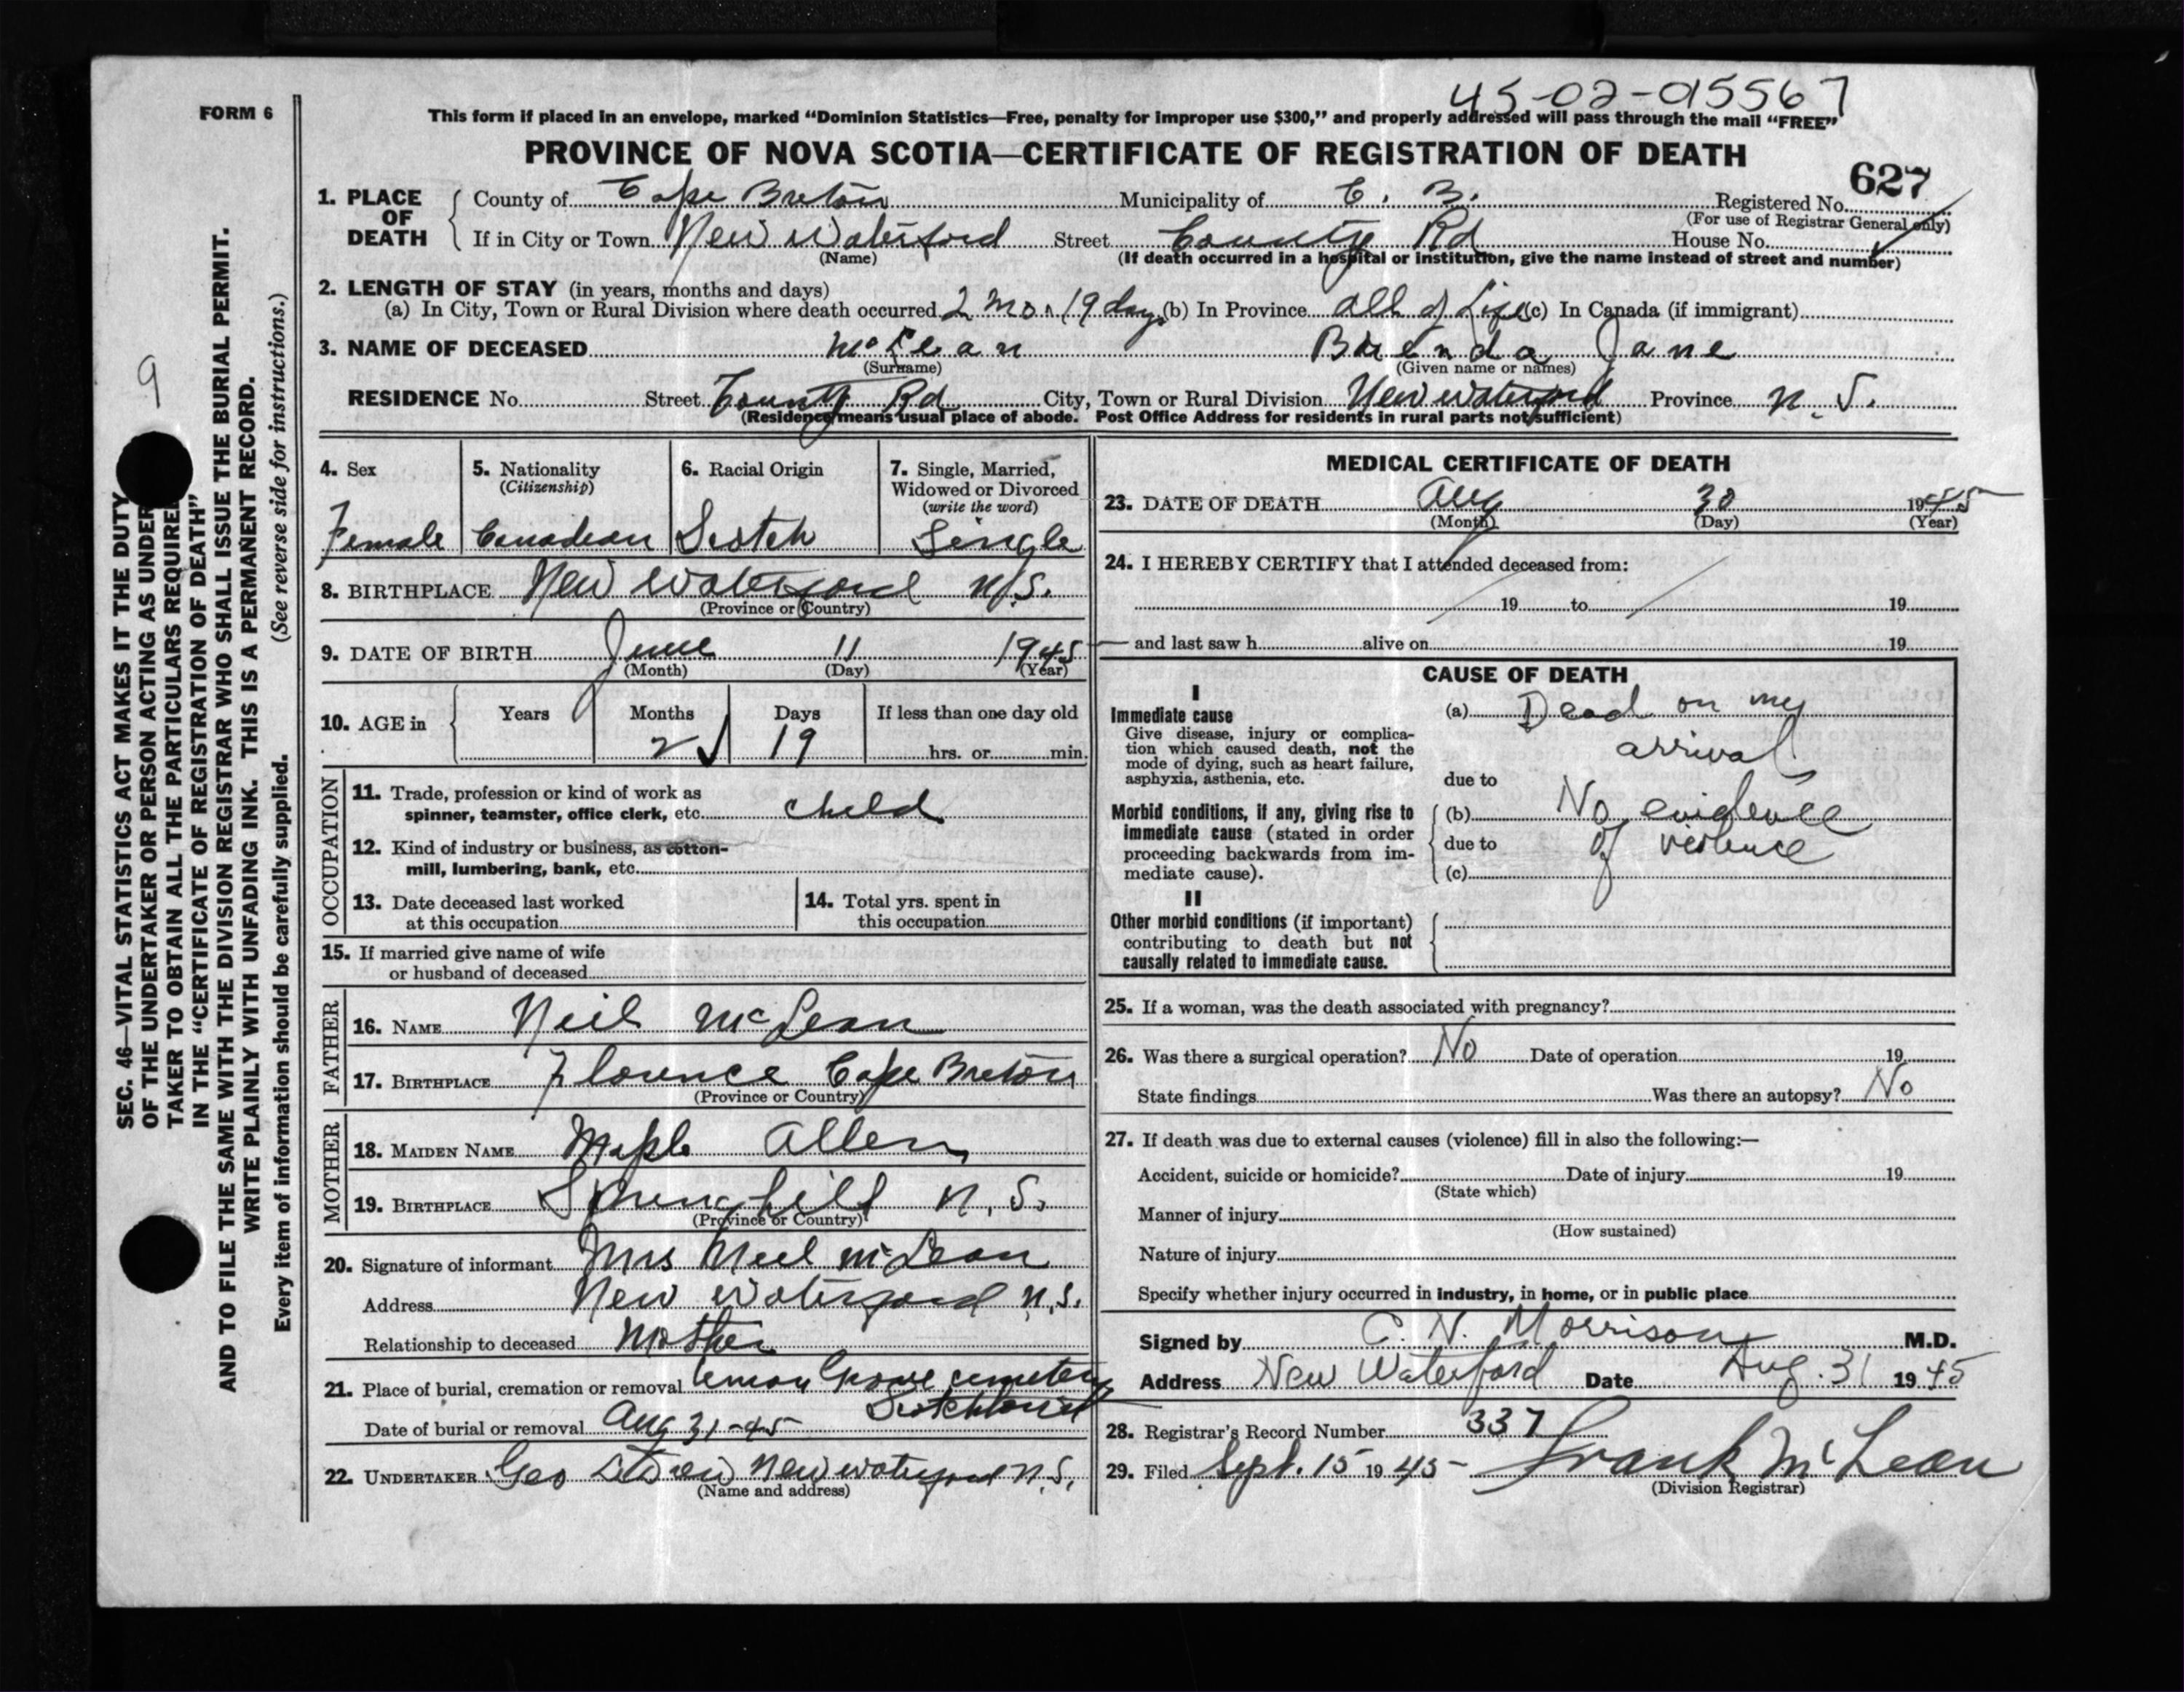 45-02-015567
FORM 6
This form if placed in an envelope, marked “Dominion Statistics—Free, penalty for improper use $300,” and properly addressed will pass through the mail “FREE”
PROVINCE OF NOVA SCOTIA—CERTIFICATE OF REGISTRATION OF DEATH
627
1. PLACE OF DEATH
County of Cape Breton Municipality of C. B. Registered No.
(For use of Registrar General only)
If in City or Town New Waterford Street County Rd House No.
(Name) (If death occurred in a hospital or institution, give the name instead of street and number)
2. LENGTH OF STAY (in years, months and days)
(a) In City, Town or Rural Division where death occurred 2 mon 19 days (b) In Province all of Life (c) In Canada (if immigrant)
3. NAME OF DECEASED McLean Brenda Jane
(Surname) (Given name or names)
RESIDENCE No. Street County Rd City, Town or Rural Division New Waterford Province N. S.
(Residence means usual place of abode. Post Office Address for residents in rural parts not sufficient)
4. Sex
Female
5. Nationality
(Citizenship)
Canadian
6. Racial Origin
Scotch
7. Single, Married,
Widowed or Divorced
(write the word)
Single
8. BIRTHPLACE New Waterford N.S.
(Province or Country)
9. DATE OF BIRTH June 11 1945
(Month) (Day) (Year)
10. AGE in Years Months Days If less than one day old
2 19 hrs. or min.
OCCUPATION
11. Trade, profession or kind of work as
spinner, teamster, office clerk, etc. child
12. Kind of industry or business, as cotton-
mill, lumbering, bank, etc.
13. Date deceased last worked
at this occupation
14. Total yrs. spent in
this occupation
15. If married give name of wife
or husband of deceased
FATHER
16. NAME Neil McLean
17. BIRTHPLACE Florence Cape Breton
(Province or Country)
MOTHER
18. MAIDEN NAME Maple Allen
19. BIRTHPLACE Springhill N. S.
(Province or Country)
20. Signature of informant Mrs Neil McLean
Address New Waterford N.S.
Relationship to deceased Mother
21. Place of burial, cremation or removal Grove cemetery
Scotchtown
Date of burial or removal Aug 31-45
22. UNDERTAKER Geo New Waterford N.S.
(Name and address)
MEDICAL CERTIFICATE OF DEATH
23. DATE OF DEATH Aug 30 1945
(Month) (Day) (Year)
24. I HEREBY CERTIFY that I attended deceased from:
19 to 19
and last saw h alive on 19
CAUSE OF DEATH
I
Immediate cause
Give disease, injury or complica-
tion which caused death, not the
mode of dying, such as heart failure,
asphyxia, asthenia, etc.
(a) Dead on my
arrival
due to
Morbid conditions, if any, giving rise to
immediate cause (stated in order
proceeding backwards from im-
mediate cause).
(b) No evidence
due to of violence
(c)
II
Other morbid conditions (if important)
contributing to death but not
causally related to immediate cause.
25. If a woman, was the death associated with pregnancy?
26. Was there a surgical operation? No Date of operation 19
State findings Was there an autopsy? No
27. If death was due to external causes (violence) fill in also the following:—
Accident, suicide or homicide? Date of injury 19
(State which)
Manner of injury
(How sustained)
Nature of injury
Specify whether injury occurred in industry, in home, or in public place
Signed by C. N. Morrison M.D.
Address New Waterford Date Aug. 31 1945
28. Registrar's Record Number 337
29. Filed Sept. 15 1945 Frank McLean
(Division Registrar)
9
SEC. 46—VITAL STATISTICS ACT MAKES IT THE DUTY
OF THE UNDERTAKER OR PERSON ACTING AS UNDER
TAKER TO OBTAIN ALL THE PARTICULARS REQUIRE
IN THE “CERTIFICATE OF REGISTRATION OF DEATH”
AND TO FILE THE SAME WITH THE DIVISION REGISTRAR WHO SHALL ISSUE THE BURIAL PERMIT.
WRITE PLAINLY WITH UNFADING INK. THIS IS A PERMANENT RECORD.
Every item of information should be carefully supplied. (See reverse side for instructions.)